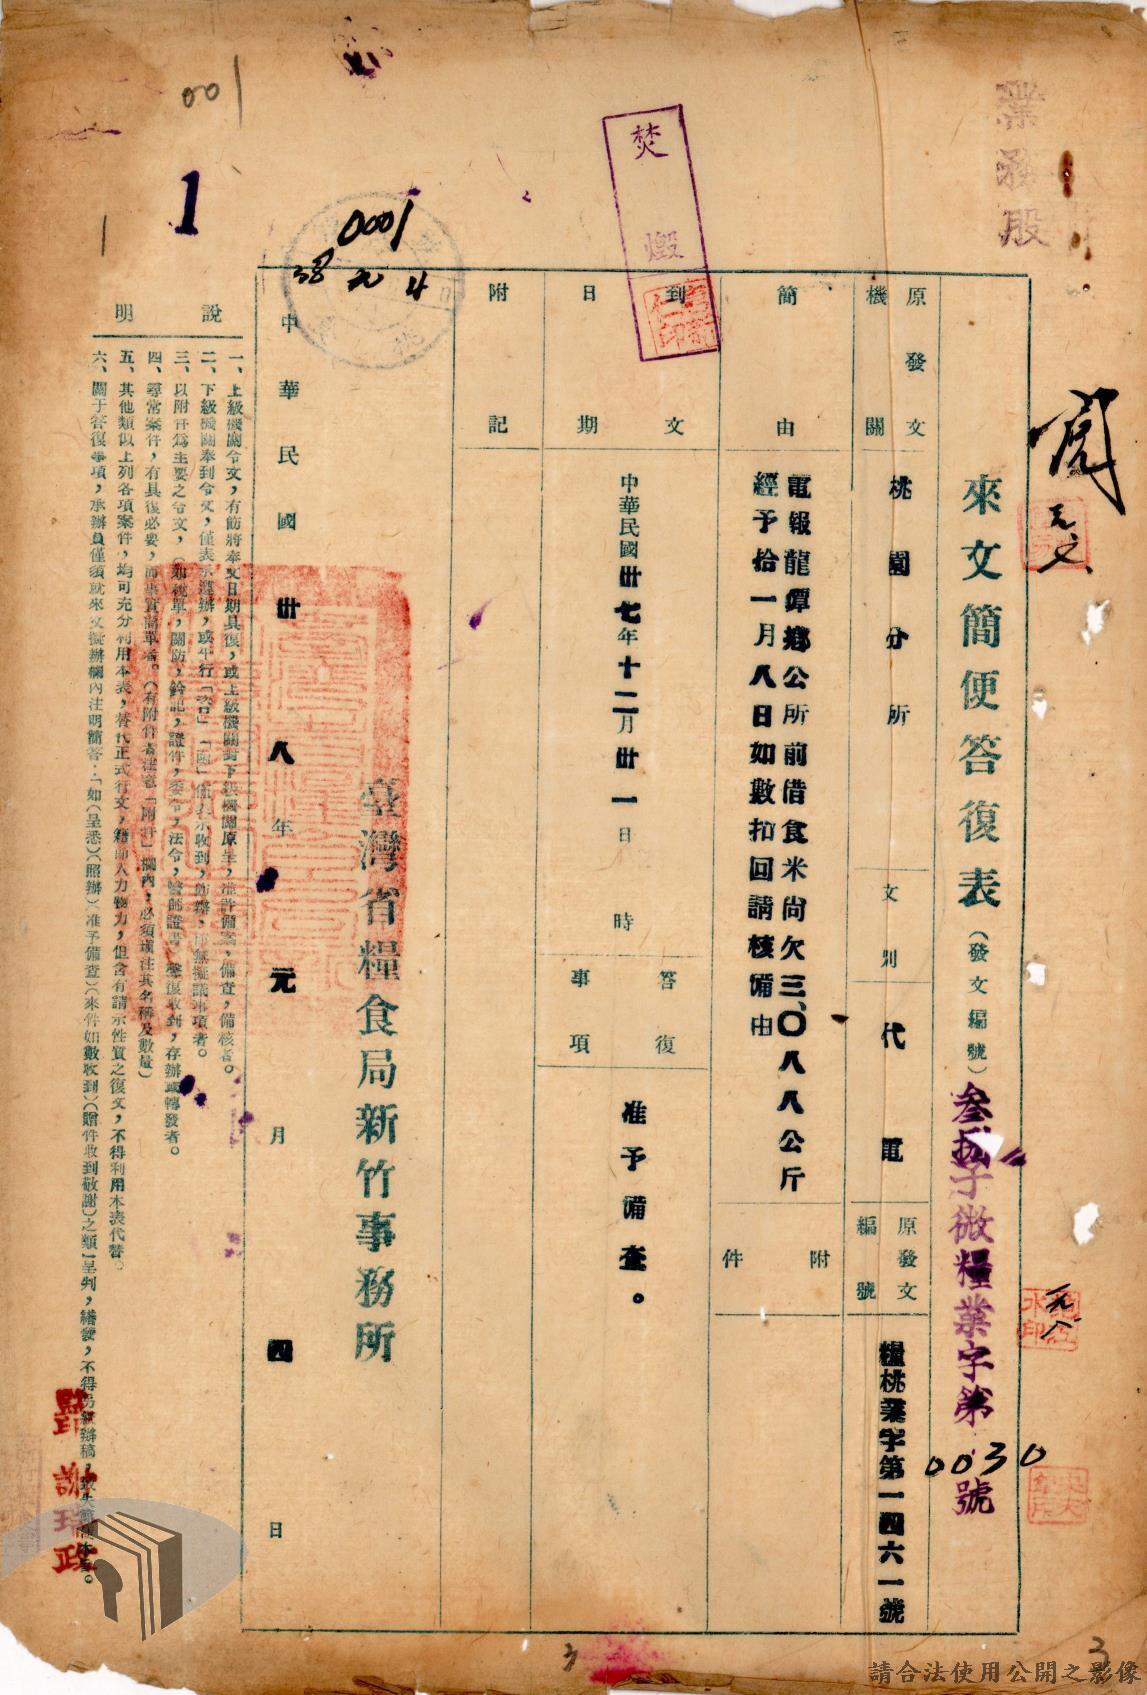 業務股
001
1
0001
38 元 4
焚燬
來文簡便答復表(發文編號)叁捌子微糧業字第0030號
原發文機關
桃園分所
文別
代電
原發文編號
糧桃業字第一四六一號
簡由
電報龍潭鄉公所前借食米尚欠三、〇八八公斤
經予拾一月八日如數扣回請核備由
附件
到文日期
中華民國卅七年十二月卅一日 時
答復事項
准予備查。
附記
臺灣省糧食局新竹事務所
中華民國卅八年元月四日
說明
一、上級機關令文,有飭將奉文日期具復,或上級機關對下級機關原呈,准許備案,備查,備核者。
二、下級機關奉到令文,僅表示遵辦,或平行「咨」「函」僅表示收到,飭辦,併無擬議事項者。
三、以附件為主要之令文,(如稅單,關防,鈐記,證件,委令,法令,醫師證書)聲復收到,存辦或轉發者。
四、尋常案件,有具復必要,而事實簡單者。(有附件者注意「附件」欄內,必須填注其名稱及數量)
五、其他類似上列各項案件,均可充分利用本表,替代正式行文,藉節人力物力,但含有請示性質之復文,不得利用本表代替。
六、關于答復事項,承辦員僅須就來文擬辦欄內注明簡答:「如(呈悉)(照辦)准予備查)(來件如數收到)(贈件收到敬謝)之類」呈判,繕發,不得另行辦稿,致失簡便本旨。
監印 謝瑞政
3
3
請合法使用公開之影像